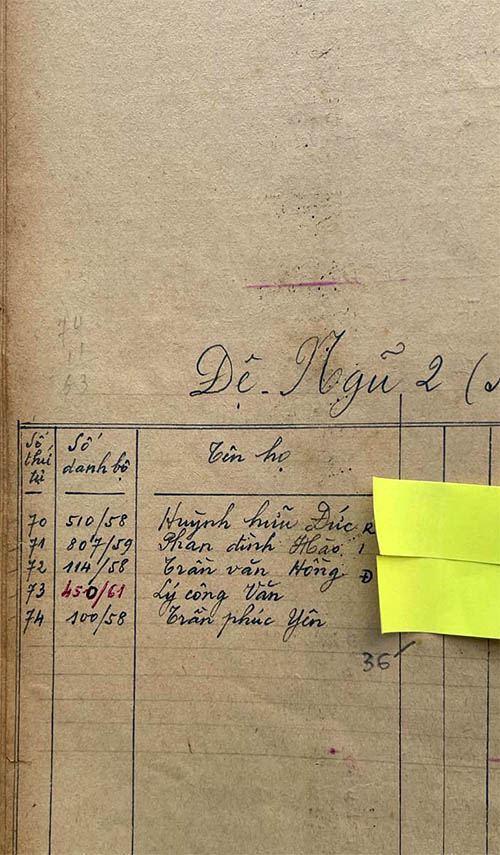 74
11
63
Đệ-Ngũ 2 (
Số thứ tự Số danh bộ Tên họ
70 510/58 Huỳnh hữu Đức
71 807/59 Phan đình Hào
72 114/58 Trần văn Hồng Đ
73 450/61 Lý công Văn
74 100/58 Trần phúc Yên
36